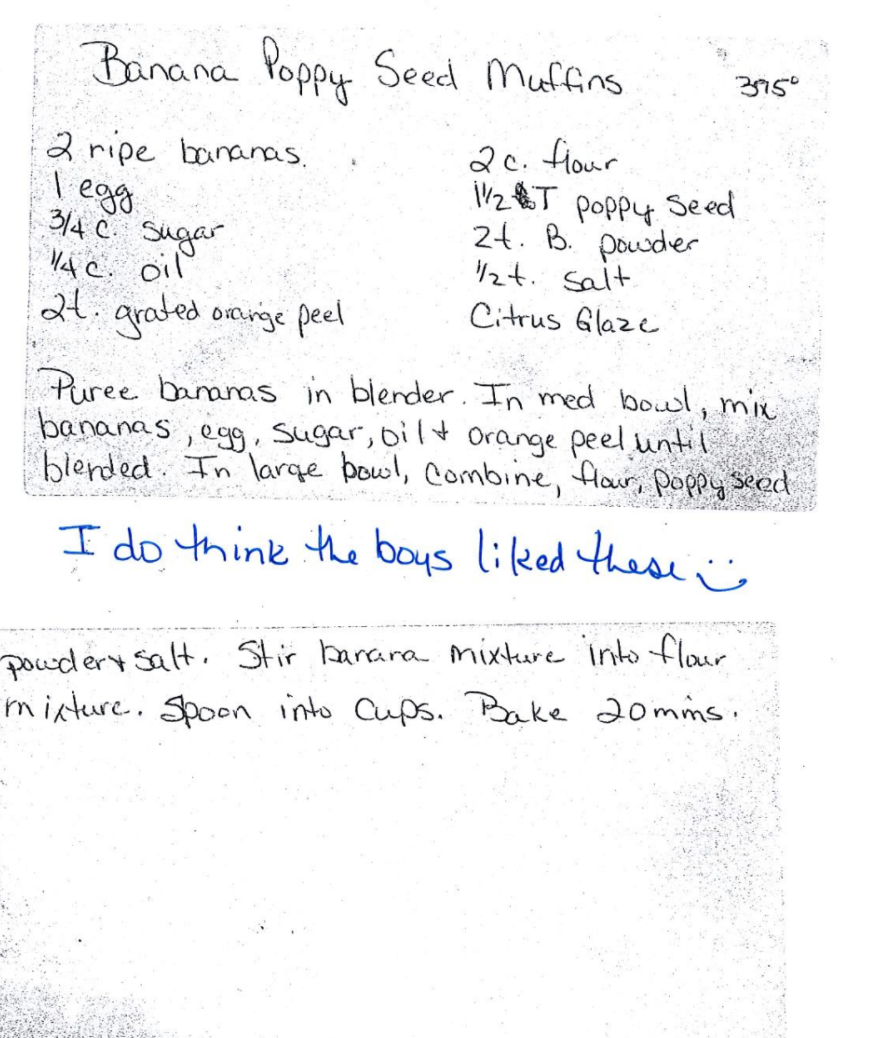 Banana Poppy Seed Muffins 395°
2 ripe bananas.
1 egg
3/4 c. sugar
1/4 c. oil
2t. grated orange peel
2 c. flour
1 1/2 T poppy seed
2t. B. powder
1/2 t. salt
Citrus Glaze
Puree bananas in blender. In med bowl, mix
bananas, egg, sugar, oil + orange peel until
blended. In large bowl, combine, flour, poppy seed
I do think the boys liked these :)
powder + salt. Stir banana mixture into flour
mixture. Spoon into cups. Bake 20 mins.